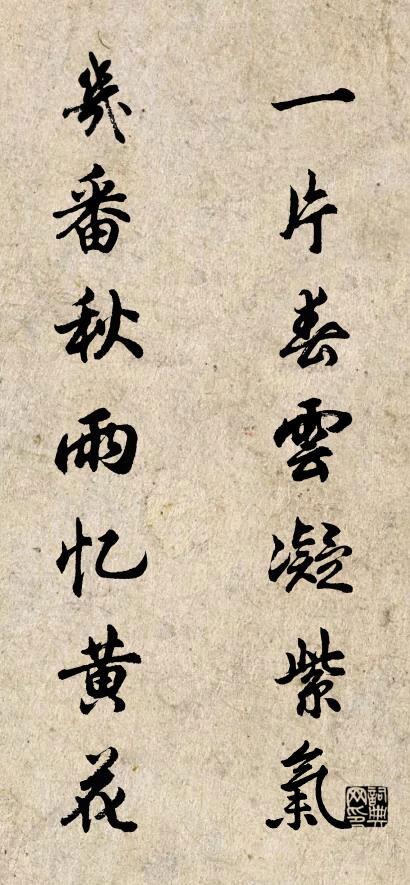 一片春雲凝紫氣
幾番秋雨忆黄花
詞典网印